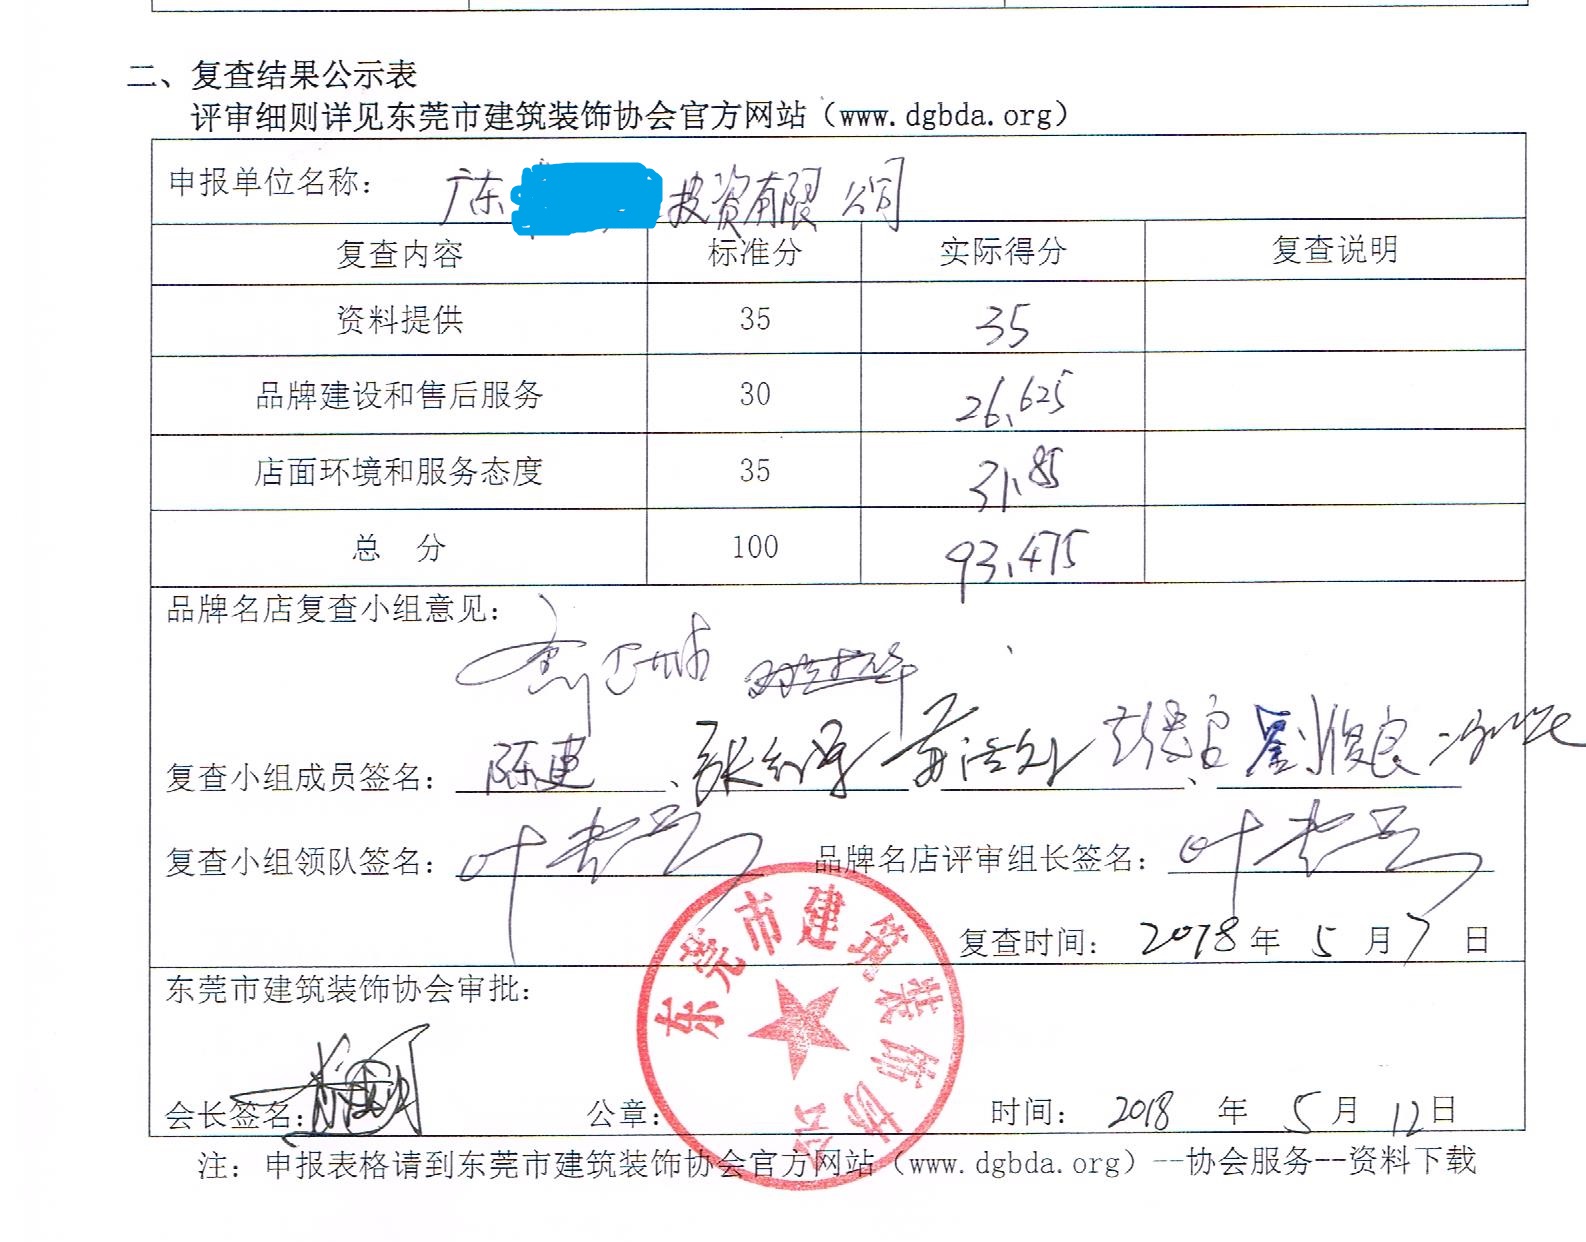 二、复查结果公示表
评审细则详见东莞市建筑装饰协会官方网站（www.dgbda.org）
申报单位名称： 广东 投资有限公司
复查内容 标准分 实际得分 复查说明
资料提供 35 35
品牌建设和售后服务 30 26.625
店面环境和服务态度 35 31.85
总 分 100 93.475
品牌名店复查小组意见：
复查小组成员签名： 陈建
复查小组领队签名： 品牌名店评审组长签名：
复查时间： 2018年 5 月 7 日
东莞市建筑装饰协会审批：
东莞市建筑装饰协会
会长签名： 公章： 时间： 2018 年 5 月 12 日
注： 申报表格请到东莞市建筑装饰协会官方网站（www.dgbda.org）--协会服务--资料下载